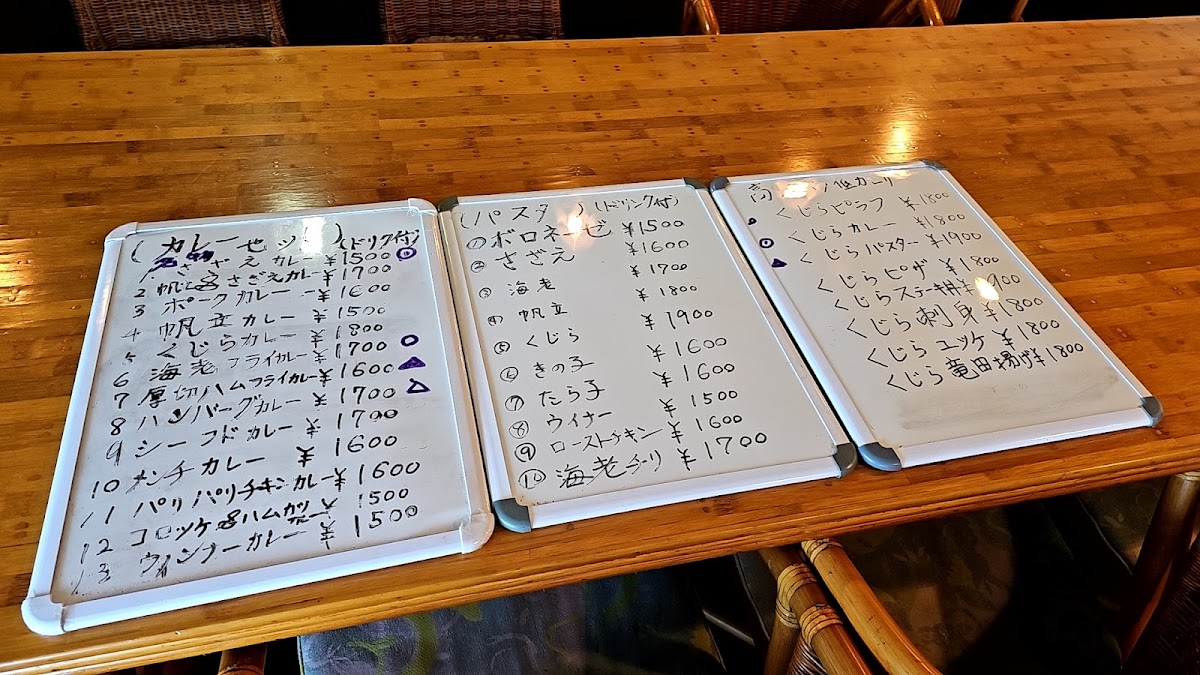 (カレーセット)(ドリンク付)
1 さざえカレー ¥1500 ◎
2 帆立&さざえカレー ¥1700
3 ポークカレー ¥1600
4 帆立カレー ¥1500
5 くじらカレー ¥1800
6 海老フライカレー ¥1700 ○
7 厚切ハムフライカレー ¥1600 ▲
8 ハンバーグカレー ¥1700 △
9 シーフドカレー ¥1700
10 メンチカレー ¥1600
11 パリパリチキンカレー ¥1600
12 コロッケ&ハムカツカレー ¥1500
13 ウィンナーカレー ¥1500
(パスタ)(ドリンク付)
①ボロネーゼ ¥1500
② さざえ ¥1600
③ 海老 ¥1700
④ 帆立 ¥1800
⑤ くじら ¥1900
⑥ きの子 ¥1600
⑦ たら子 ¥1600
⑧ ウイナー ¥1500
⑨ ローストチキン ¥1600
⑩ 海老チリ ¥1700
低カロリー
くじらピラフ ¥1800
くじらカレー ¥1800
くじらパスター ¥1900
くじらピザ ¥1800
くじらステーキ丼
くじら刺身 ¥1800
くじらユッケ ¥1800
くじら竜田揚げ ¥1800